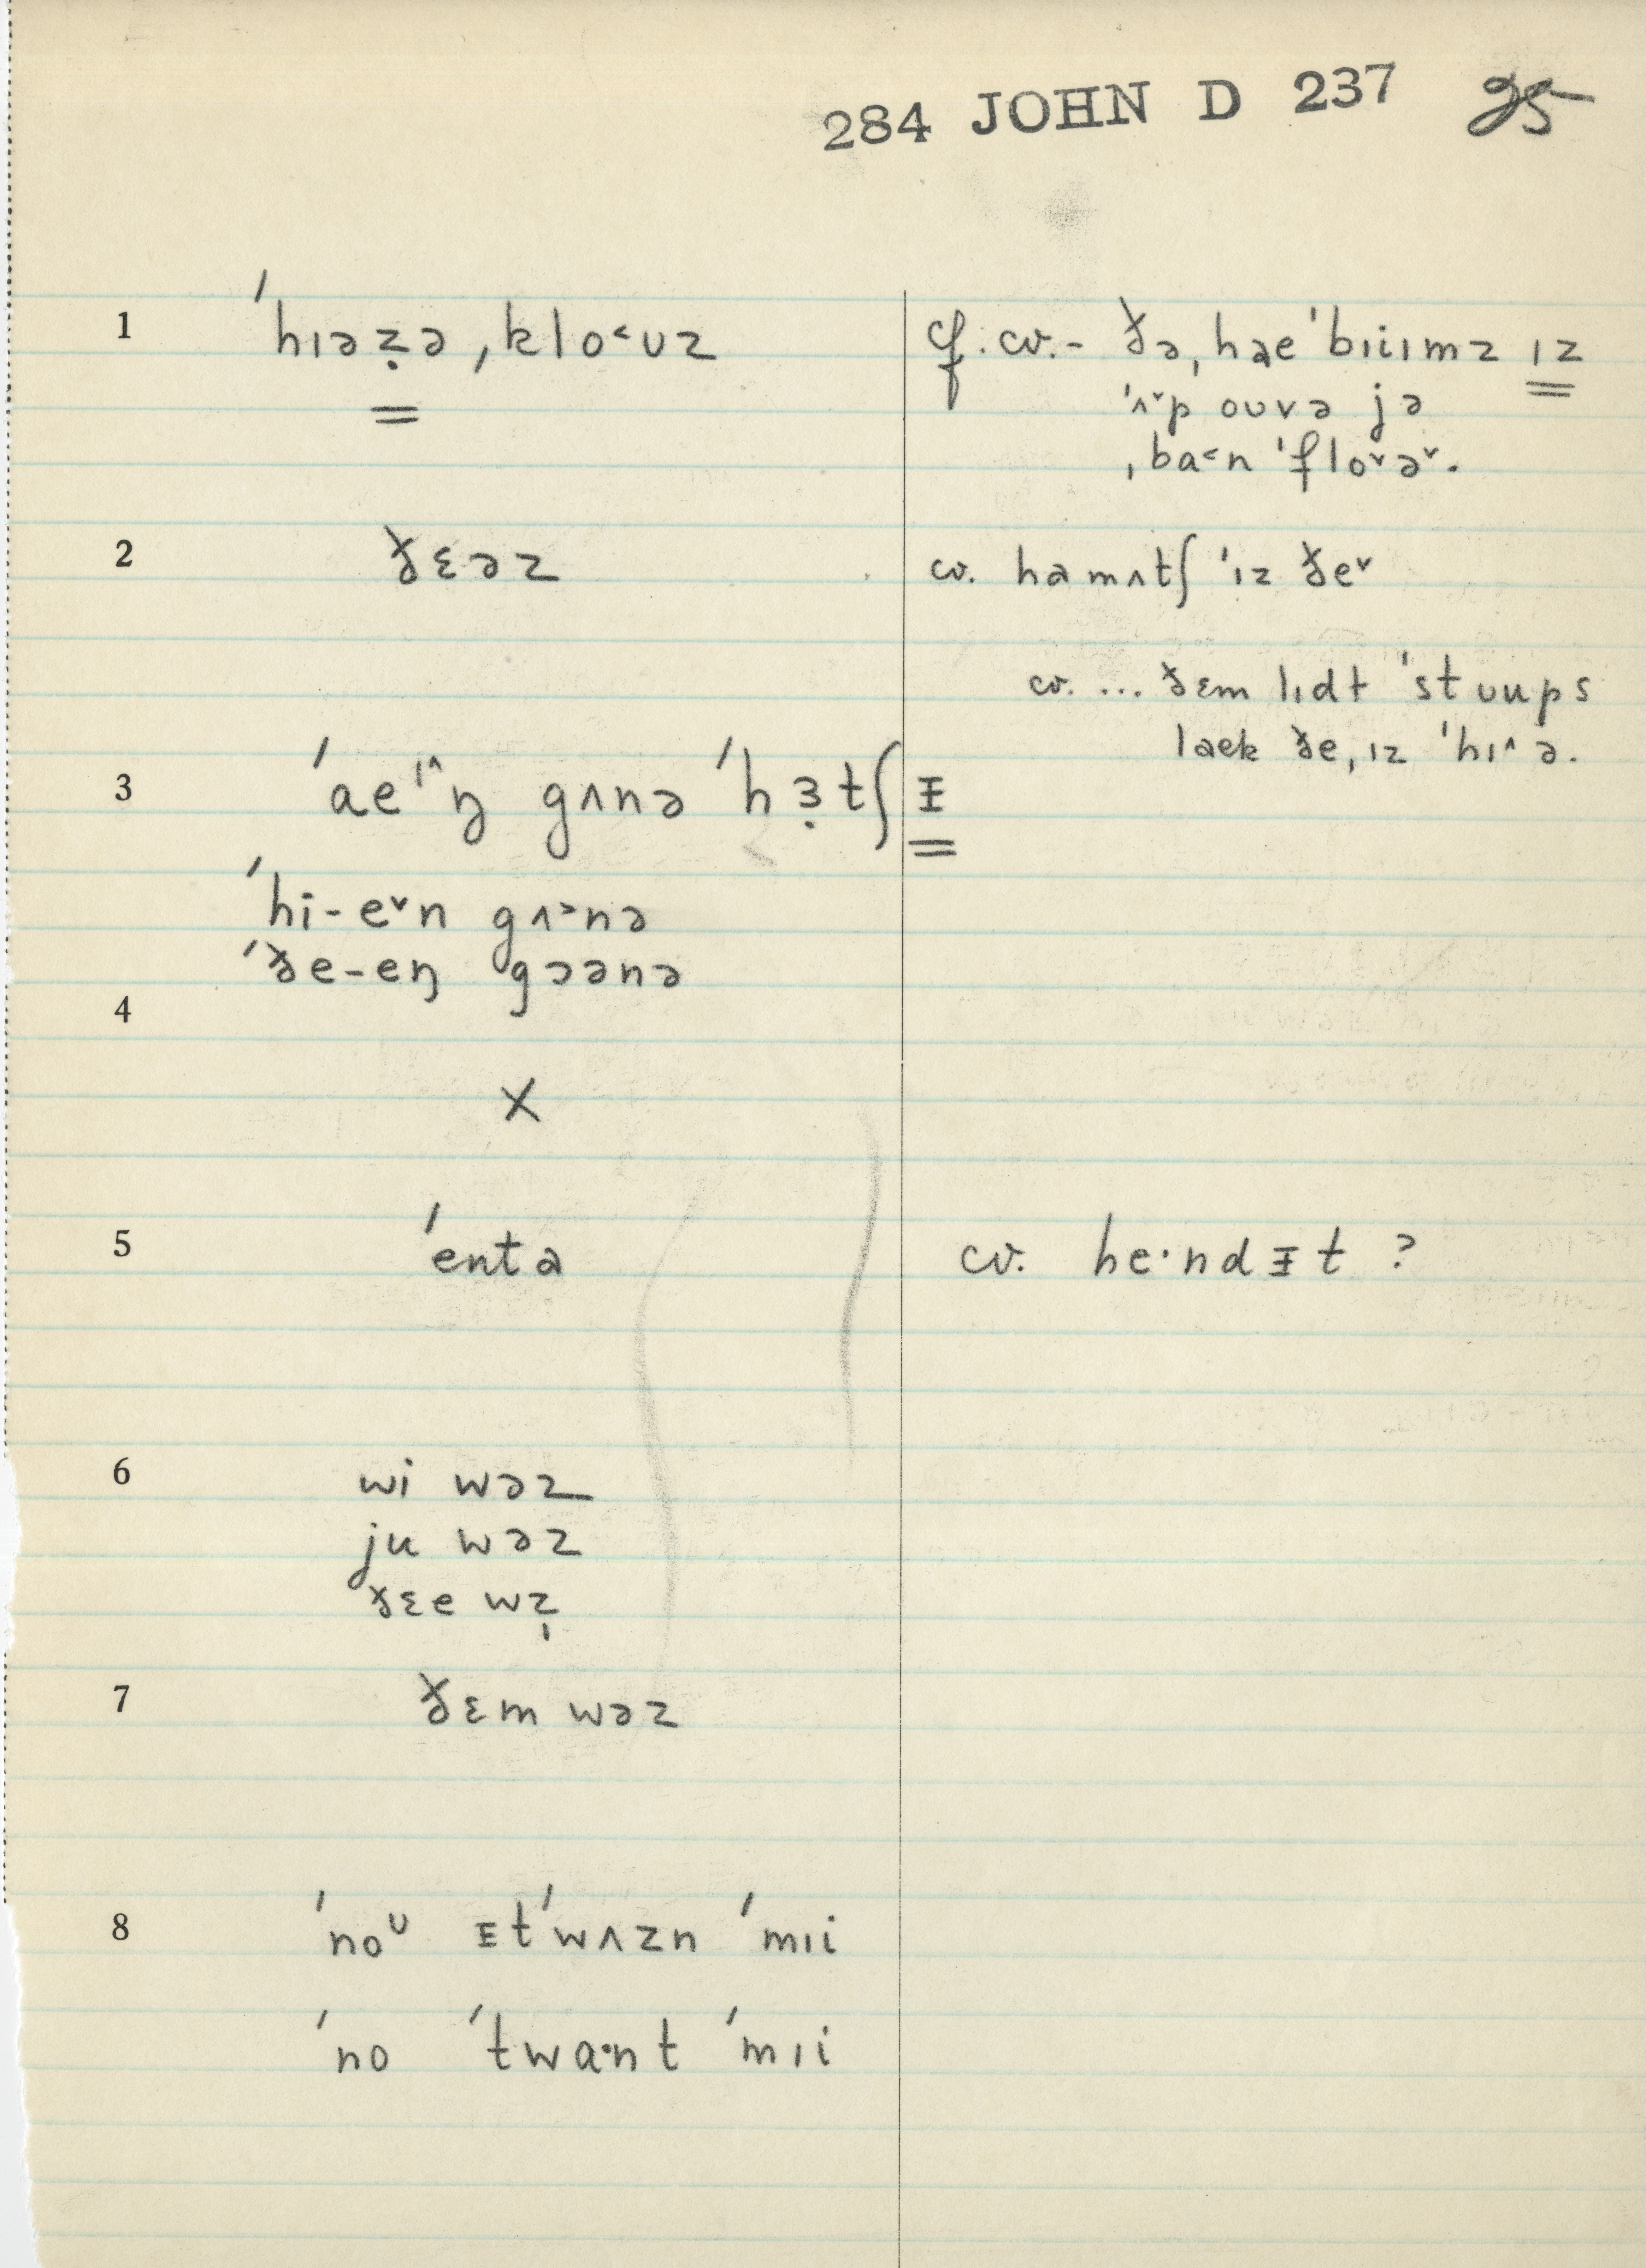 284 JOHN D 237 25
1 ˈhɪəẓə ˌklo˂ʊz
cf. cv. - ðə ˌhae ˈbɪiɪmz ɪz
ˈʌ˅p oʊvə jə
ˌba˂n ˈflo˅ə˅.
2 ðɛəz
cv. hamʌtʃ ˈɪz ðe˅
cv. ... ðɛm lɪdɫ ˈstʊups
laek ðe ˌɪz ˈhɪ˄ ə.
3 ˈaeɪ˄ŋ gʌnə ˈhɜ̣tʃᵻ
ˈhi-e˅n gʌ˃nə
ˈðe-eŋ gɔənə
4
X
5 ˈenta
cv. heˑndᵻt ?
6 wi wəz
ju wəz
ðɛe wz̩
7 ðɛm wəz
8 ˈnoᶷ ᵻtˈwʌzn ˈmɪi
ˈno ˈtwaˑnt ˈmɪi